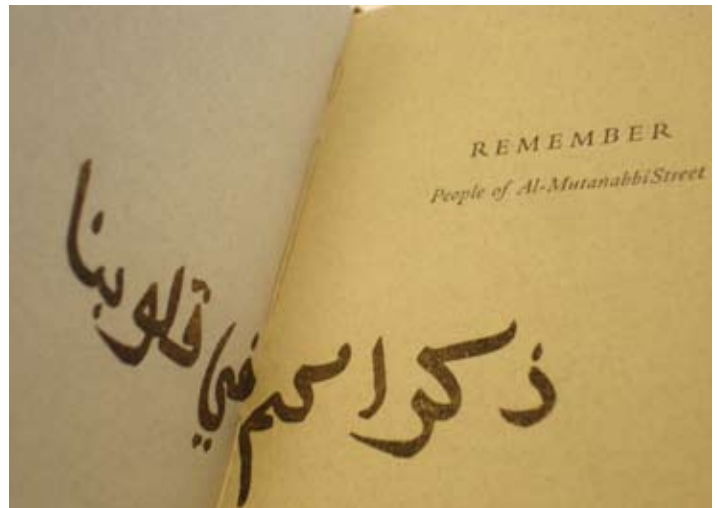 REMEMBER
People of Al-Mutanabbi Street
ذكراكم في قلوبنا